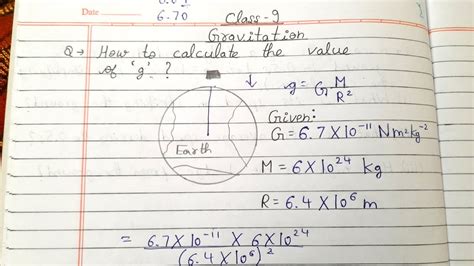 Date
6.70
Class-9
Gravitation
Q→ How to calculate the value
of 'g'?
↓ g = G M/R²
Given:
G = 6.7 X 10⁻¹¹ Nm²kg⁻²
Earth
M = 6 X 10²⁴ kg
R = 6.4 X 10⁶ m
= 6.7 X 10⁻¹¹ X 6 X 10²⁴
(6.4 X 10⁶)²